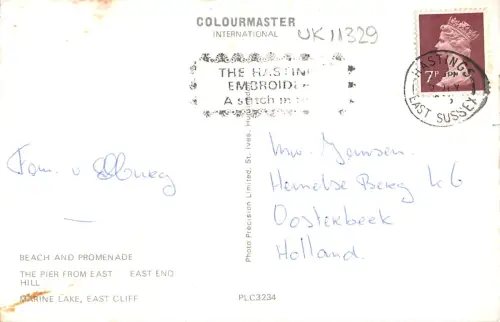 COLOURMASTER
INTERNATIONAL
UK11329
THE HASTIN
EMBROIDE
A stitch in
7P
HASTINGS
EAST SUSSEX
PM
Fam. v
Jansen
Hemelse Berg
Oosterbeek
Holland.
Photo Precision Limited, St. Ives, Hu
BEACH AND PROMENADE
THE PIER FROM EAST EAST END
HILL
MARINE LAKE, EAST CLIFF
PLC3234